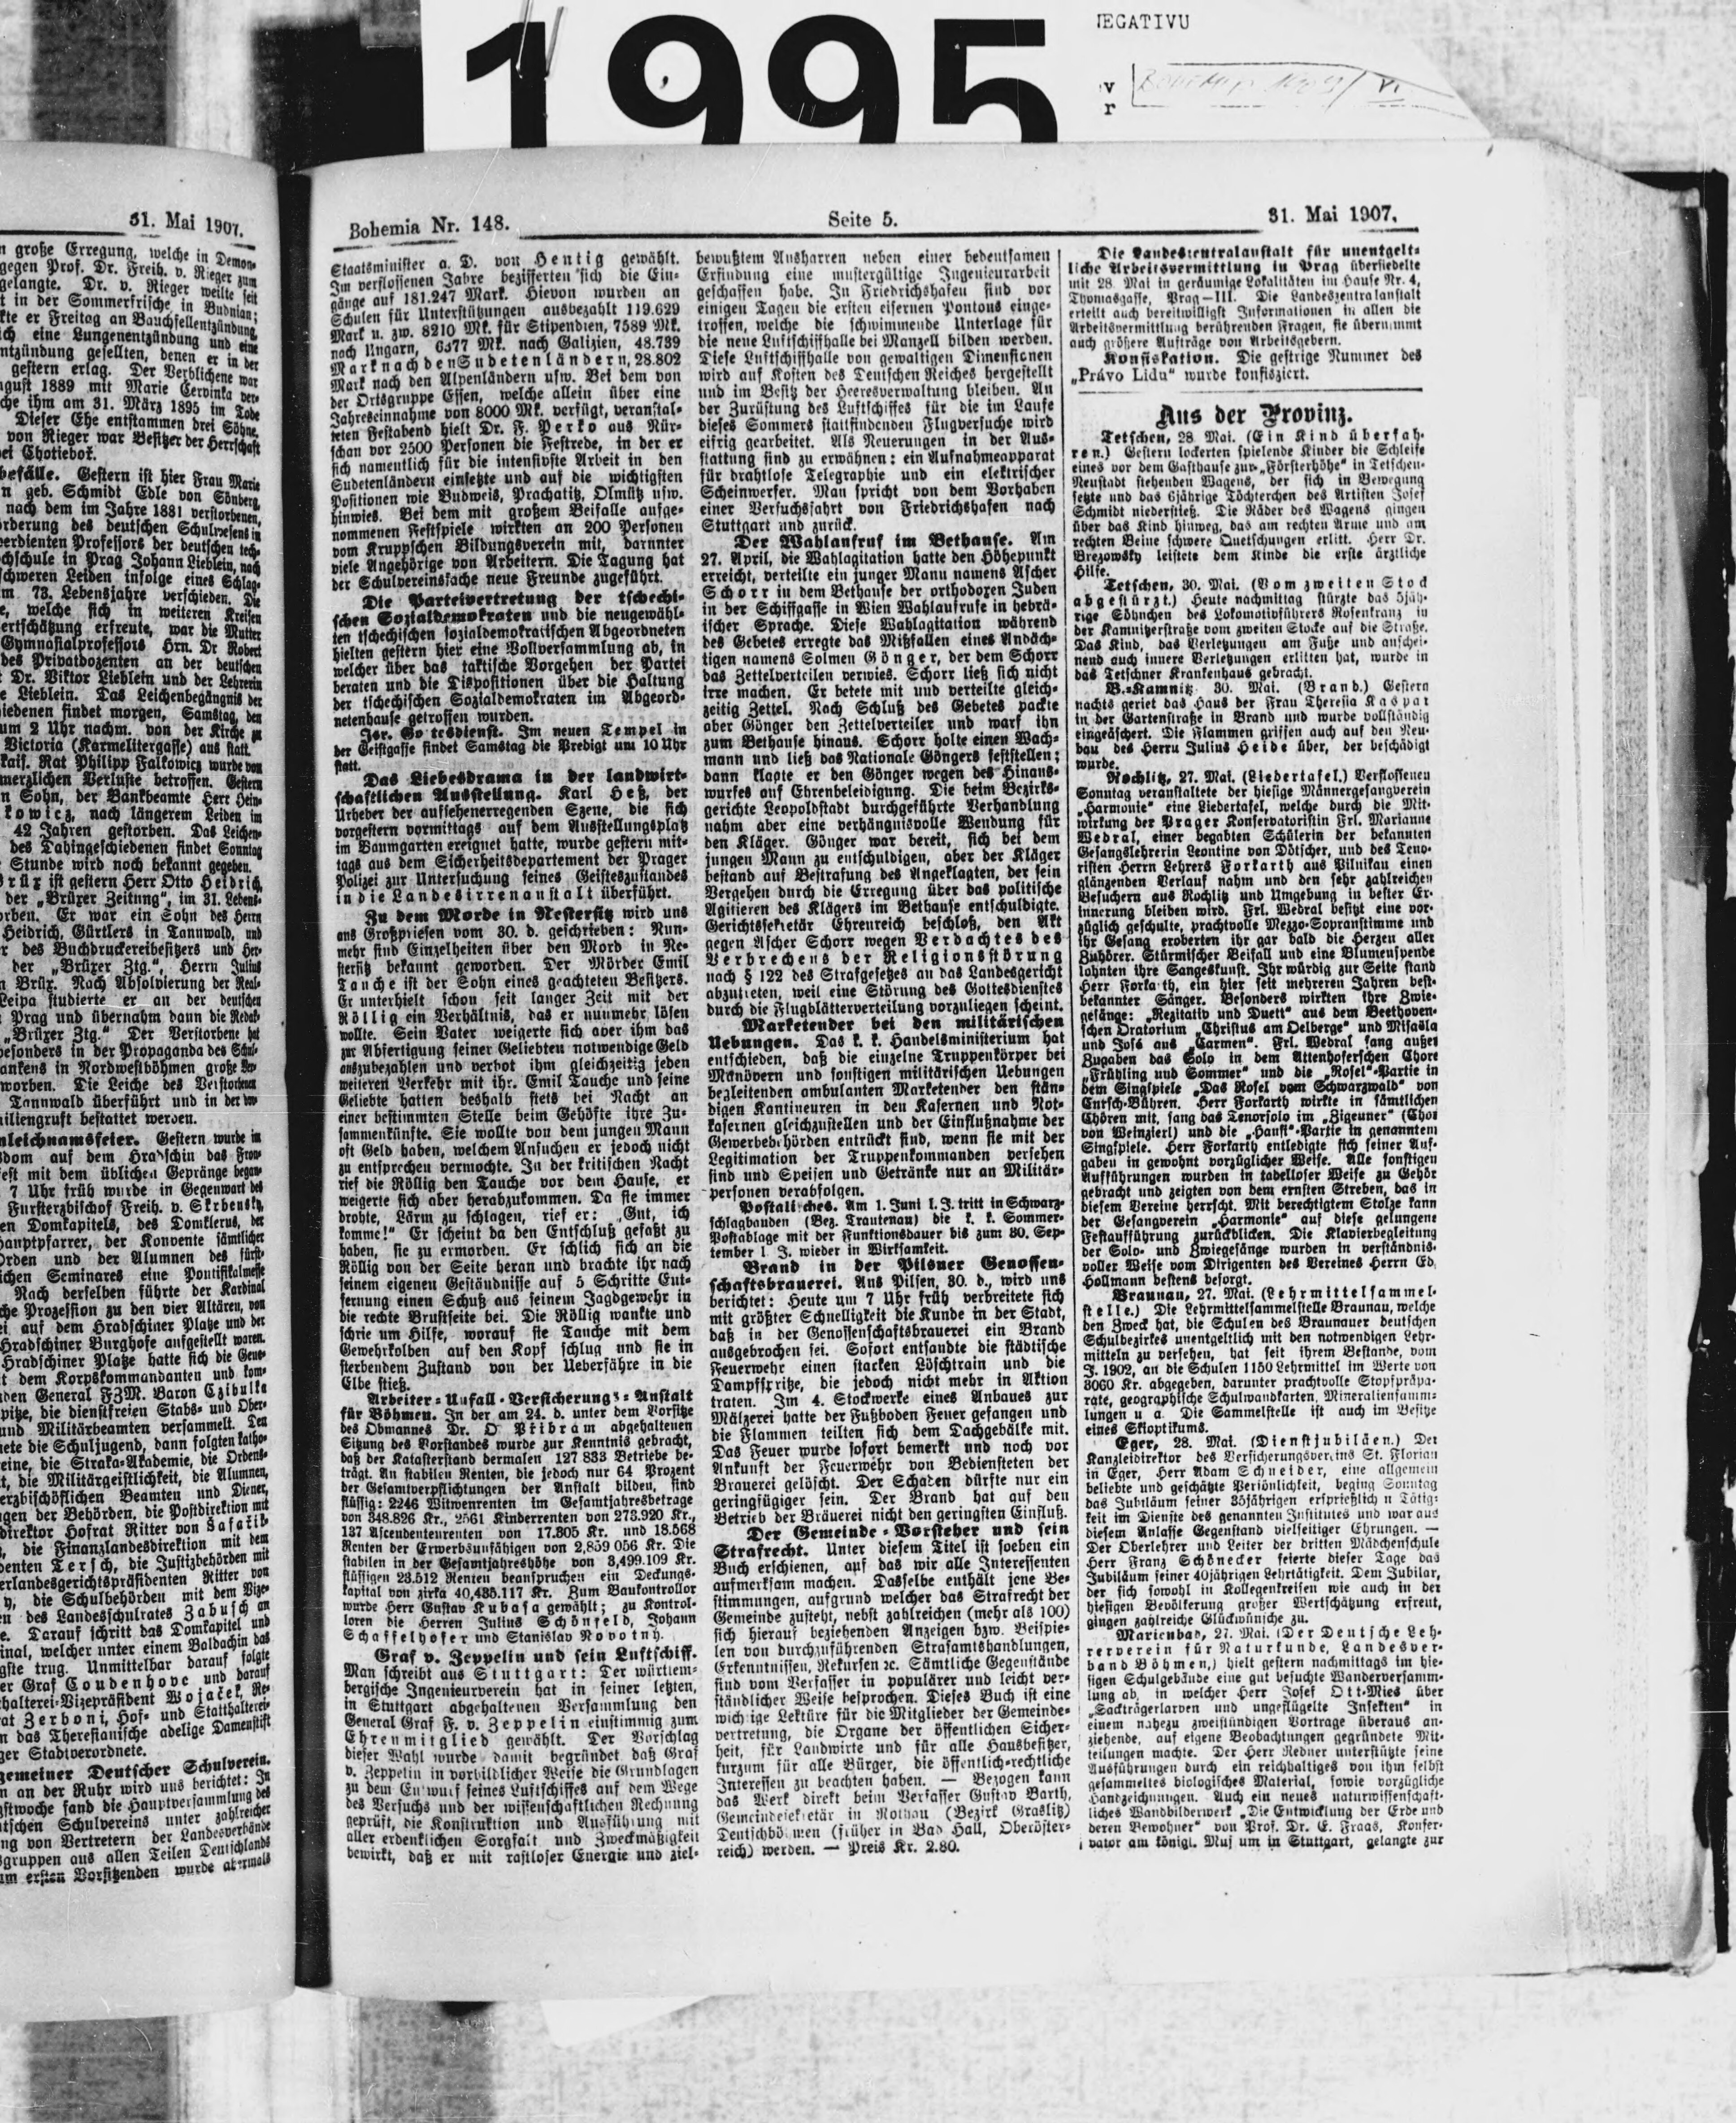 1995
NEGATIVU
v
r
31. Mai 1907.
große Erregung, welche in Demon-
gegen Prof. Dr. Freih. v. Rieger zum
gelangte. Dr. v. Rieger weilte seit
t in der Sommerfrische, in Budnian;
kte er Freitag an Bauchfellentzündung,
ich eine Lungenentzündung und eine
ntzündung gesellten, denen er in der
gestern erlag. Der Verblichene war
ugust 1889 mit Marie Cervinka ver-
che ihm am 31. März 1895 im Tode
Dieser Ehe entstammen drei Söhne.
von Rieger war Besitzer der Herrschaft
bei Chotieboř.
befälle. Gestern ist hier Frau Marie
n geb. Schmidt Edle von Sönberg,
nach dem im Jahre 1881 verstorbenen,
örderung des deutschen Schulwesens in
verdienten Professors der deutschen tech-
chschule in Prag Johann Lieblein, nach
schweren Leiden infolge eines Schlag-
m 73. Lebensjahre verschieden. Die
e, welche sich in weiteren Kreisen
ertschätzung erfreute, war die Mutter
Gymnasialprofessors Hrn. Dr Robert
des Privatdozenten an der deutschen
t Dr. Viktor Lieblein und der Lehrerin
e Lieblein. Das Leichenbegängnis der
iedenen findet morgen, Samstag, den
um 2 Uhr nachm. von der Kirche zu
Victoria (Karmelitergasse) aus statt.
kais. Rat Philipp Falkowicz wurde von
merzlichen Verluste betroffen. Gestern
n Sohn, der Bankbeamte Herr Hein-
kowicz, nach längerem Leiden im
42 Jahren gestorben. Das Leichen-
des Dahingeschiedenen findet Sonntag
Stunde wird noch bekannt gegeben.
Brüx ist gestern Herr Otto Heidrich,
der „Brüxer Zeitung“, im 31. Lebens-
orben. Er war ein Sohn des Herrn
Heidrich, Gürtlers in Tannwald, und
r des Buchdruckereibesitzers und Her-
der „Brüxer Ztg.“, Herrn Julius
n Brüx. Nach Absolvierung der Real-
Leipa studierte er an der deutschen
Prag und übernahm dann die Redak-
„Brüxer Ztg.“ Der Verstorbene hat
besonders in der Propaganda des Schul-
ankens in Nordwestböhmen große Ver-
worben. Die Leiche des Verstorbenen
Tannwald überführt und in der dor-
miliengruft bestattet werden.
nleichnamsfeier. Gestern wurde im
dom auf dem Hradschin das Fron-
fest mit dem üblichen Gepränge began-
7 Uhr früh wurde in Gegenwart des
Fürsterzbischof Freih. v. Skrbensky,
en Domkapitels, des Domklerus, der
Hauptpfarrer, der Konvente sämtlicher
Orden und der Alumnen des fürst-
ichen Seminares eine Pontifikalmesse
Nach derselben führte der Kardinal
che Prozession zu den vier Altären, von
ei auf dem Hradschiner Platze und der
Hradschiner Burghofe aufgestellt waren.
Hradschiner Platze hatte sich die Gene-
t dem Korpskommandanten und kom-
den General FZM. Baron Czibulka
pitze, die dienstfreien Stabs- und Ober-
und Militärbeamten versammelt. Den
nete die Schuljugend, dann folgten katho-
eine, die Straka-Akademie, die Ordens-
t, die Militärgeistlichkeit, die Alumnen,
erzbischöflichen Beamten und Diener,
gen der Behörden, die Postdirektion mit
direktor Hofrat Ritter von Safařik-
, die Finanzlandesdirektion mit dem
denten Tersch, die Justizbehörden mit
erlandesgerichtspräsidenten Ritter von
y, die Schulbehörden mit dem Vize-
en des Landesschulrates Zabusch an
e. Darauf schritt das Domkapitel und
inal, welcher unter einem Baldachin das
gste trug. Unmittelbar darauf folgte
er Graf Coudenhove und darauf
halterei-Vizepräsident Wojaček, Re-
at Zerboni, Hof- und Statthalterei-
n das Theresianische adelige Damenstift
ger Stadtverordnete.
gemeiner Deutscher Schulverein.
n an der Ruhr wird uns berichtet: In
gstwoche fand die Hauptversammlung des
tschen Schulvereins unter zahlreicher
ng von Vertretern der Landesverbände
sgruppen aus allen Teilen Deutschlands
um ersten Vorsitzenden wurde abermals
Bohemia Nr. 148.
Seite 5.
31. Mai 1907.
Staatsminister a. D. von Hentig gewählt.
Im verflossenen Jahre bezifferten sich die Ein-
gänge auf 181.247 Mark. Hievon wurden an
Schulen für Unterstützungen ausbezahlt 119.629
Mark u. zw. 8210 Mk. für Stipendien, 7589 Mk.
nach Ungarn, 6377 Mk. nach Galizien, 48.739
Mark nach den Sudetenländern, 28.802
Mark nach den Alpenländern usw. Bei dem von
der Ortsgruppe Essen, welche allein über eine
Jahreseinnahme von 8000 Mk. verfügt, veranstal-
teten Festabend hielt Dr. F. Perko aus Nür-
schan vor 2500 Personen die Festrede, in der er
sich namentlich für die intensivste Arbeit in den
Sudetenländern einsetzte und auf die wichtigsten
Positionen wie Budweis, Prachatitz, Olmütz usw.
hinwies. Bei dem mit großem Beifalle aufge-
nommenen Festspiele wirkten an 200 Personen
vom Kruppschen Bildungsverein mit, darunter
viele Angehörige von Arbeitern. Die Tagung hat
der Schulvereinssache neue Freunde zugeführt.
Die Parteivertretung der tschechi-
schen Sozialdemokraten und die neugewähl-
ten tschechischen sozialdemokratischen Abgeordneten
hielten gestern hier eine Vollversammlung ab, in
welcher über das taktische Vorgehen der Partei
beraten und die Dispositionen über die Haltung
der tschechischen Sozialdemokraten im Abgeord-
netenhause getroffen wurden.
Isr. Gottesdienst. Im neuen Tempel in
der Geistgasse findet Samstag die Predigt um 10 Uhr
statt.
Das Liebesdrama in der landwirt-
schaftlichen Ausstellung. Karl Heß, der
Urheber der aufsehenerregenden Szene, die sich
vorgestern vormittags auf dem Ausstellungsplatz
im Baumgarten ereignet hatte, wurde gestern mit-
tags aus dem Sicherheitsdepartement der Prager
Polizei zur Untersuchung seines Geisteszustandes
in die Landesirrenanstalt überführt.
Zu dem Morde in Nestersitz wird uns
aus Großpriesen vom 30. d. geschrieben: Nun-
mehr sind Einzelheiten über den Mord in Ne-
stersitz bekannt geworden. Der Mörder Emil
Tauche ist der Sohn eines geachteten Besitzers.
Er unterhielt schon seit langer Zeit mit der
Röllig ein Verhältnis, das er nunmehr lösen
wollte. Sein Vater weigerte sich aber ihm das
zur Abfertigung seiner Geliebten notwendige Geld
auszubezahlen und verbot ihm gleichzeitig jeden
weiteren Verkehr mit ihr. Emil Tauche und seine
Geliebte hatten deshalb stets bei Nacht an
einer bestimmten Stelle beim Gehöfte ihre Zu-
sammenkünfte. Sie wollte von dem jungen Mann
oft Geld haben, welchem Ansuchen er jedoch nicht
zu entsprechen vermochte. In der kritischen Nacht
rief die Röllig den Tauche vor dem Hause, er
weigerte sich aber herabzukommen. Da sie immer
drohte, Lärm zu schlagen, rief er: „Gut, ich
komme!“ Er scheint da den Entschluß gefaßt zu
haben, sie zu ermorden. Er schlich sich an die
Röllig von der Seite heran und brachte ihr nach
seinem eigenen Geständnisse auf 5 Schritte Ent-
fernung einen Schuß aus seinem Jagdgewehr in
die rechte Brustseite bei. Die Röllig wankte und
schrie um Hilfe, worauf sie Tauche mit dem
Gewehrkolben auf den Kopf schlug und sie in
sterbendem Zustand von der Ueberfähre in die
Elbe stieß.
Arbeiter-Unfall-Versicherungs-Anstalt
für Böhmen. In der am 24. d. unter dem Vorsitze
des Obmannes Dr. O Přibram abgehaltenen
Sitzung des Vorstandes wurde zur Kenntnis gebracht,
daß der Katasterstand dermalen 127 833 Betriebe be-
trägt. An stabilen Renten, die jedoch nur 64 Prozent
der Gesamtverpflichtungen der Anstalt bilden, sind
flüssig: 2246 Witwenrenten im Gesamtjahresbetrage
von 348.826 Kr., 2561 Kinderrenten von 273.920 Kr.,
137 Ascendentenrenten von 17.805 Kr. und 18.568
Renten der Erwerbsunfähigen von 2,859 056 Kr. Die
stabilen in der Gesamtjahreshöhe von 3,499.109 Kr.
flüssigen 23.512 Renten beanspruchen ein Deckungs-
kapital von zirka 40,435.117 Kr. Zum Baukontrollor
wurde Herr Gustav Kubasa gewählt; zu Kontrol-
loren die Herren Julius Schönfeld, Johann
Schaffelhofer und Stanislav Novotny.
Graf v. Zeppelin und sein Luftschiff.
Man schreibt aus Stuttgart: Der württem-
bergische Ingenieurverein hat in seiner letzten,
in Stuttgart abgehaltenen Versammlung den
General Graf F. v. Zeppelin einstimmig zum
Ehrenmitglied gewählt. Der Vorschlag
dieser Wahl wurde damit begründet daß Graf
v. Zeppelin in vorbildlicher Weise die Grundlagen
zu dem Entwurf seines Luftschiffes auf dem Wege
des Versuchs und der wissenschaftlichen Rechnung
geprüft, die Konstruktion und Ausführung mit
aller erdenklichen Sorgfalt und Zweckmäßigkeit
bewirkt, daß er mit rastloser Energie und ziel-
bewußtem Ausharren neben einer bedeutsamen
Erfindung eine mustergültige Ingenieurarbeit
geschaffen habe. In Friedrichshafen sind vor
einigen Tagen die ersten eisernen Pontons einge-
troffen, welche die schwimmende Unterlage für
die neue Luftschiffhalle bei Manzell bilden werden.
Diese Luftschiffhalle von gewaltigen Dimensionen
wird auf Kosten des Deutschen Reiches hergestellt
und im Besitz der Heeresverwaltung bleiben. An
der Zurüstung des Luftschiffes für die im Laufe
dieses Sommers stattfindenden Flugversuche wird
eifrig gearbeitet. Als Neuerungen in der Aus-
stattung sind zu erwähnen: ein Aufnahmeapparat
für drahtlose Telegraphie und ein elektrischer
Scheinwerfer. Man spricht von dem Vorhaben
einer Versuchsfahrt von Friedrichshafen nach
Stuttgart und zurück.
Der Wahlaufruf im Bethause. Am
27. April, die Wahlagitation hatte den Höhepunkt
erreicht, verteilte ein junger Mann namens Ascher
Schorr in dem Bethause der orthodoxen Juden
in der Schiffgasse in Wien Wahlaufrufe in hebrä-
ischer Sprache. Diese Wahlagitation während
des Gebetes erregte das Mißfallen eines Andäch-
tigen namens Solmen Gönger, der dem Schorr
das Zettelverteilen verwies. Schorr ließ sich nicht
irre machen. Er betete mit und verteilte gleich-
zeitig Zettel. Nach Schluß des Gebetes packte
aber Gönger den Zettelverteiler und warf ihn
zum Bethause hinaus. Schorr holte einen Wach-
mann und ließ das Nationale Göngers feststellen;
dann klagte er den Gönger wegen des Hinaus-
wurfes auf Ehrenbeleidigung. Die beim Bezirks-
gerichte Leopoldstadt durchgeführte Verhandlung
nahm aber eine verhängnisvolle Wendung für
den Kläger. Gönger war bereit, sich bei dem
jungen Mann zu entschuldigen, aber der Kläger
bestand auf Bestrafung des Angeklagten, der sein
Vergehen durch die Erregung über das politische
Agitieren des Klägers im Bethause entschuldigte.
Gerichtssekretär Ehrenreich beschloß, den Akt
gegen Ascher Schorr wegen Verdachtes des
Verbrechens der Religionsstörung
nach § 122 des Strafgesetzes an das Landesgericht
abzutreten, weil eine Störung des Gottesdienstes
durch die Flugblätterverteilung vorzuliegen scheint.
Marketender bei den militärischen
Uebungen. Das k. k. Handelsministerium hat
entschieden, daß die einzelne Truppenkörper bei
Manövern und sonstigen militärischen Uebungen
begleitenden ambulanten Marketender den stän-
digen Kantineuren in den Kasernen und Not-
kasernen gleichzustellen und der Einflußnahme der
Gewerbebehörden entrückt sind, wenn sie mit der
Legitimation der Truppenkommanden versehen
sind und Speisen und Getränke nur an Militär-
personen verabfolgen.
Postalisches. Am 1. Juni l. J. tritt in Schwarz-
schlagbauden (Bez. Trautenau) die k. k. Sommer-
Postablage mit der Funktionsdauer bis zum 30. Sep-
tember l J. wieder in Wirksamkeit.
Brand in der Pilsner Genossen-
schaftsbrauerei. Aus Pilsen, 30. d., wird uns
berichtet: Heute um 7 Uhr früh verbreitete sich
mit größter Schnelligkeit die Kunde in der Stadt,
daß in der Genossenschaftsbrauerei ein Brand
ausgebrochen sei. Sofort entsandte die städtische
Feuerwehr einen starken Löschtrain und die
Dampfspritze, die jedoch nicht mehr in Aktion
traten. Im 4. Stockwerke eines Anbaues zur
Mälzerei hatte der Fußboden Feuer gefangen und
die Flammen teilten sich dem Dachgebälke mit.
Das Feuer wurde sofort bemerkt und noch vor
Ankunft der Feuerwehr von Bediensteten der
Brauerei gelöscht. Der Schaden dürfte nur ein
geringfügiger sein. Der Brand hat auf den
Betrieb der Bräuerei nicht den geringsten Einfluß.
Der Gemeinde-Vorsteher und sein
Strafrecht. Unter diesem Titel ist soeben ein
Buch erschienen, auf das wir alle Interessenten
aufmerksam machen. Dasselbe enthält jene Be-
stimmungen, aufgrund welcher das Strafrecht der
Gemeinde zusteht, nebst zahlreichen (mehr als 100)
sich hierauf beziehenden Anzeigen bzw. Beispie-
len von durchzuführenden Strafamtshandlungen,
Erkenntnissen, Rekursen ꝛc. Sämtliche Gegenstände
sind vom Verfasser in populärer und leicht ver-
ständlicher Weise besprochen. Dieses Buch ist eine
wichtige Lektüre für die Mitglieder der Gemeinde-
vertretung, die Organe der öffentlichen Sicher-
heit, für Landwirte und für alle Hausbesitzer,
kurzum für alle Bürger, die öffentlich-rechtliche
Interessen zu beachten haben. — Bezogen kann
das Werk direkt beim Verfasser Gustav Barth,
Gemeindesekretär in Rothau (Bezirk Graslitz)
Deutschböhmen (früher in Bad Hall, Oberöster-
reich) werden. — Preis Kr. 2.80.
Die Landeszentralanstalt für unentgelt-
liche Arbeitsvermittlung in Prag übersiedelte
mit 28 Mai in geräumige Lokalitäten im Hause Nr. 4,
Thomasgasse, Prag—III. Die Landeszentralanstalt
erteilt auch bereitwilligst Informationen in allen die
Arbeitsvermittlung berührenden Fragen, sie übernimmt
auch größere Aufträge von Arbeitsgebern.
Konfiskation. Die gestrige Nummer des
„Právo Lidu“ wurde konfisziert.
Aus der Provinz.
Tetschen, 28 Mai. (Ein Kind überfah-
ren.) Gestern lockerten spielende Kinder die Schleife
eines vor dem Gasthause zur „Försterhöhe“ in Tetschen-
Neustadt stehenden Wagens, der sich in Bewegung
setzte und das 6jährige Töchterchen des Artisten Josef
Schmidt niederstieß. Die Räder des Wagens gingen
über das Kind hinweg, das am rechten Arme und am
rechten Beine schwere Quetschungen erlitt. Herr Dr.
Brezowsky leistete dem Kinde die erste ärztliche
Hilfe.
Tetschen, 30. Mai. (Vom zweiten Stock
abgestürzt.) Heute nachmittag stürzte das 5jäh-
rige Söhnchen des Lokomotivführers Rosenkranz in
der Kamnitzerstraße vom zweiten Stocke auf die Straße.
Das Kind, das Verletzungen am Fuße und anschei-
nend auch innere Verletzungen erlitten hat, wurde in
das Tetschner Krankenhaus gebracht.
B.-Kamnitz 30. Mai. (Brand.) Gestern
nachts geriet das Haus der Frau Theresia Kaspar
in der Gartenstraße in Brand und wurde vollständig
eingeäschert. Die Flammen griffen auch auf den Neu-
bau des Herrn Julius Heide über, der beschädigt
wurde.
Rochlitz, 27. Mai. (Liedertafel.) Verflossenen
Sonntag veranstaltete der hiesige Männergesangverein
„Harmonie“ eine Liedertafel, welche durch die Mit-
wirkung der Prager Konservatoristin Frl. Marianne
Wedral, einer begabten Schülerin der bekannten
Gesangslehrerin Leontine von Dötscher, und des Teno-
risten Herrn Lehrers Forkarth aus Pilnikau einen
glänzenden Verlauf nahm und den sehr zahlreichen
Besuchern aus Rochlitz und Umgebung in bester Er-
innerung bleiben wird. Frl. Wedral besitzt eine vor-
züglich geschulte, prachtvolle Mezzo-Sopranstimme und
ihr Gesang eroberten ihr gar bald die Herzen aller
Zuhörer. Stürmischer Beifall und eine Blumenspende
lohnten ihre Sangeskunst. Ihr würdig zur Seite stand
Herr Forkarth, ein hier seit mehreren Jahren best-
bekannter Sänger. Besonders wirkten ihre Zwie-
gesänge: „Rezitativ und Duett“ aus dem Beethoven-
schen Oratorium „Christus am Oelberge“ und Micaëla
und José aus „Carmen“. Frl. Wedral sang außer
Zugaben das Solo in dem Attenhoferschen Chore
„Frühling und Sommer“ und die „Rosel“-Partie in
dem Singspiele „Das Rosel vom Schwarzwald“ von
Entsch-Bühren. Herr Forkarth wirkte in sämtlichen
Chören mit, sang das Tenorsolo im „Zigeuner“ (Chor
von Weinzierl) und die „Hansl“-Partie in genanntem
Singspiele. Herr Forkarth entledigte sich seiner Auf-
gaben in gewohnt vorzüglicher Weise. Alle sonstigen
Aufführungen wurden in tadelloser Weise zu Gehör
gebracht und zeigten von dem ernsten Streben, das in
diesem Vereine herrscht. Mit berechtigtem Stolze kann
der Gesangverein „Harmonie“ auf diese gelungene
Festaufführung zurückblicken. Die Klavierbegleitung
der Solo- und Zwiegesänge wurden in verständnis-
voller Weise vom Dirigenten des Vereines Herrn Ed.
Hollmann bestens besorgt.
Braunau, 27. Mai. (Lehrmittelsammel-
stelle.) Die Lehrmittelsammelstelle Braunau, welche
den Zweck hat, die Schulen des Braunauer deutschen
Schulbezirkes unentgeltlich mit den notwendigen Lehr-
mitteln zu versehen, hat seit ihrem Bestande, vom
J. 1902, an die Schulen 1150 Lehrmittel im Werte von
3060 Kr. abgegeben, darunter prachtvolle Stopfpräpa-
rate, geographische Schulwandkarten, Mineraliensamm-
lungen u a. Die Sammelstelle ist auch im Besitze
eines Skioptikums.
Eger, 28. Mai. (Dienstjubiläen.) Der
Kanzleidirektor des Versicherungsvereins St. Florian
in Eger, Herr Adam Schneider, eine allgemein
beliebte und geschätzte Persönlichkeit, beging Sonntag
das Jubiläum seiner 35jährigen ersprießlichen Tätig-
keit im Dienste des genannten Institutes und war aus
diesem Anlasse Gegenstand vielseitiger Ehrungen. —
Der Oberlehrer und Leiter der dritten Mädchenschule
Herr Franz Schönecker feierte dieser Tage das
Jubiläum seiner 40jährigen Lehrtätigkeit. Dem Jubilar,
der sich sowohl in Kollegenkreisen wie auch in der
hiesigen Bevölkerung großer Wertschätzung erfreut,
gingen zahlreiche Glückwünsche zu.
Marienbad, 27. Mai. (Der Deutsche Leh-
rerverein für Naturkunde, Landesver-
band Böhmen,) hielt gestern nachmittags im hie-
sigen Schulgebäude eine gut besuchte Wanderversamm-
lung ab, in welcher Herr Josef Ott-Mies über
„Sackträgerlarven und ungeflügelte Insekten“ in
einem nahezu zweistündigen Vortrage überaus an-
ziehende, auf eigene Beobachtungen gegründete Mit-
teilungen machte. Der Herr Redner unterstützte seine
Ausführungen durch ein reichhaltiges von ihm selbst
gesammeltes biologisches Material, sowie vorzügliche
Handzeichnungen. Auch ein neues naturwissenschaft-
liches Wandbilderwerk „Die Entwicklung der Erde und
deren Bewohner“ von Prof. Dr. E. Fraas, Konser-
vator am königl. Museum in Stuttgart, gelangte zur